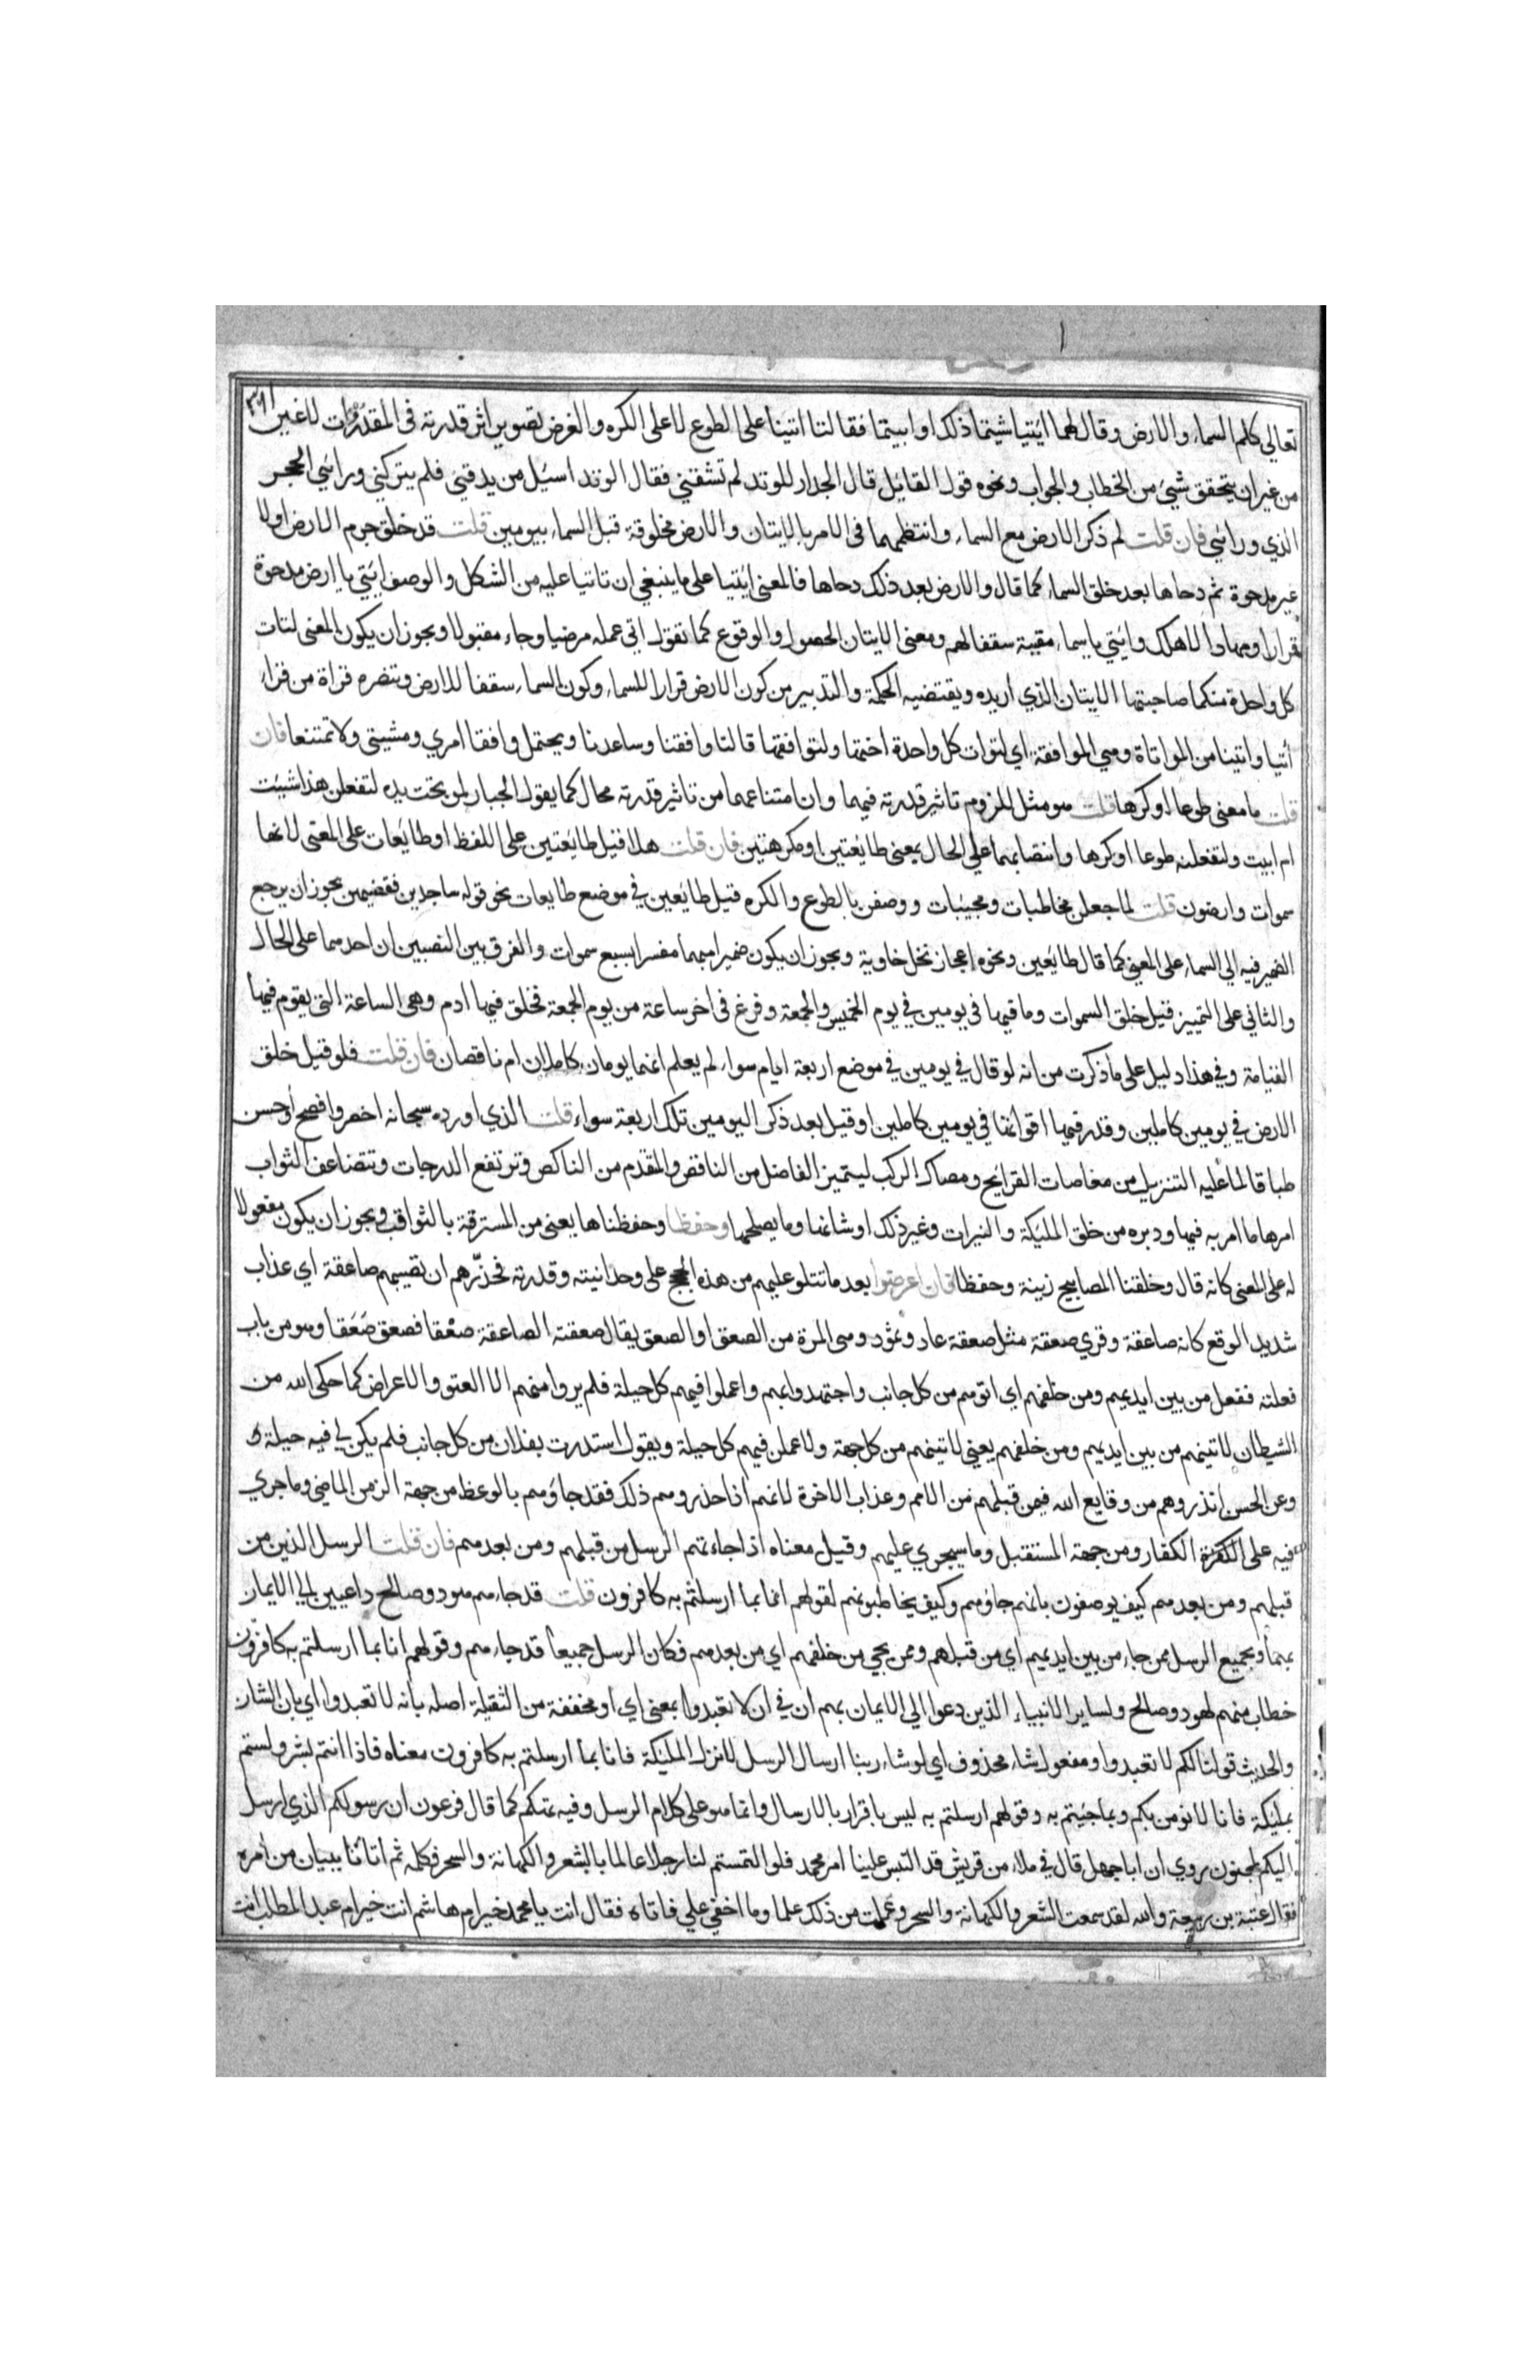 تعالى كلم السماء والارض وقال لهما ائيتيا شيتما ذلك او ابيتما فقالتا اتينا على الطوع لا على الكره والغرض تصوير اثر قدرته فى المقدورات لاغير
من غير ان يتحقق شيئ من الخطاب والجواب ونحوه قول القائيل قال الجدار للوتد لم تشقني فقال الوتد اسئيل من يدقني فلم يتركني ورائي الحجر
الذي ورائي فان قلت لم ذكر الارض مع السماء وانتظمهما فى الامر بالايتان والارض مخلوقة قبل السماء بيومين قلت قد خلق جرم الارض اولا
غير مدحوة ثم دحاها بعد خلق السماء كما قال والارض بعد ذلك دحاها فالمعنى ائيتيا على ما ينبغي ان تاتيا عليه من الشكل والوصف ايتي يا ارض مدحوة
قرارا ومهادا لاهلك وايتي يا سماء مقببة سقفا لهم ومعنى الايتان الحصول والوقوع كما تقول اتى عمله مرضيا وجاء مقبولا ويجوز ان يكون المعنى لتات
كل واحدة منكما صاحبتها الايتان الذي اريده ويقتضيه الحكمة والتدبير من كون الارض قرارا للسماء وكون السماء سقفا للارض وتنصره قراة من قراء
أتيا واتينا من المواتاة وهي الموافقة اي لتوات كل واحدة اختها ولتوافقها قالتا وافقنا وساعدنا ويحتمل وافقا امري ومشيتى ولا تمتنعا فان
قلت ما معنى طوعا اوكرها قلت هو مثل للزوم تاثير قدرته فيهما وان امتناعهما من تاثير قدرته محال كما يقول الجبار لمن تحت يده لتفعلن هذا شيئت
ام ابيت ولتفعلنه طوعا اوكرها وانتصابهما على الحال بمعنى طائعتين او مكرهتين فان قلت هلا قيل طائعتين على اللفظ او طايعات على المعنى لانها
سموات وارضون قلت لما جعلن مخاطبات ومجيبات ووصفن بالطوع والكره قيل طايعين في موضع طايعات نحو قوله ساجدين فقضيهن يجوز ان يرجع
الضمير فيه الى السماء على المعنى كما قال طايعين ونحوه اعجاز نخل خاوية ويجوز ان يكون ضميرا مبهما مفسرا بسبع سموات والفرق بين النصبين ان احدهما على الحال
والثاني على التمييز قيل خلق السموات وما فيها فى يومين في يوم الخميس والجمعة وفرغ فى اخر ساعة من يوم الجمعة فخلق فيها ادم وهى الساعة التى يقوم فيها
القيامة وفي هذا دليل على ما ذكرت من انه لو قال في يومين في موضع اربعة ايام سواء لم يعلم انهما يومان كاملان ام ناقصان فان قلت فلو قيل خلق
الارض في يومين كاملين وقدر فيها اقواتها في يومين كاملين او قيل بعد ذكر اليومين تلك اربعة سواء قلت الذي اورده سبحانه اخصر وافصح واحسن
طباقا لما عليه التنزيل من مغاصات القرايح ومصاك الركب ليتميز الفاضل من الناقص والمقدم من الناكص وترتفع الدرجات وتتضاعف الثواب
امرها ما امر به فيها ودبره من خلق المليكة والنيرات وغير ذلك او شانها وما يصلحها وحفظا وحفظناها يعنى من المسترقة بالثواقب ويجوز ان يكون مفعولا
له على المعنى كانه قال وخلقنا المصابيح زينة وحفظا فان اعرضوا بعد ما تتلو عليهم من هذه الحجج على وحدانيته وقدرته فحذّرهم ان تصيبهم صاعقة اي عذاب
شديد الوقع كانه صاعقة وقري صعقة مثل صعقة عاد وثمود وهى المرة من الصعق او الصعق يقال صعقته الصاعقة صعقا فصعق صَعَقا وهو من باب
فعلته ففعل من بين ايديهم ومن خلفهم اي اتوهم من كل جانب واجتهدوا بهم واعملوا فيهم كل حيلة فلم يروا منهم الا العتو والاعراض كما حكى الله من
الشيطان لاتينهم من بين ايديهم ومن خلفهم يعني لاتينهم من كل جهة ولاعملن فيهم كل حيلة ويقول استدرت بفلان من كل جانب فلم يكن لي فيه حيلة و
وعن الحسن انذروهم من وقايع الله فيمن قبلهم من الامم وعذاب الاخرة لانهم اذا حذروهم ذلك فقد جاؤهم بالوعظ من جهة الزمن الماضي وما جري
فيه على الكفرة الكفار ومن جهة المستقبل وما سيجري عليهم وقيل معناه اذ جاءتهم الرسل من قبلهم ومن بعدهم فان قلت الرسل الذين من
قبلهم ومن بعدهم كيف يوصفون بانهم جاؤهم وكيف يخاطبونهم لقولهم انا بما ارسلتم به كافرون قلت قد جاءهم هود وصالح داعيين الي الايمان
بهما وبجميع الرسل ممن جاء من بين ايديهم اي من قبلهم وممن يجي من خلفهم اي من بعدهم فكان الرسل جميعا قد جاءهم وقولهم انا بما ارسلتم به كافرون
خطاب منهم لهود وصالح ولساير الانبياء الذين دعوا الي الايمان بهم ان في ان لا تعبدوا بمعنى اي او مخففة من الثقيلة اصله بانه لا تعبدوا اي بان الشان
والحديث قولنا لكم لا تعبدوا ومفعول شاء محذوف اي لو شاء ربنا ارسال الرسل لانزل المليكة فانا بما ارسلتم به كافرون معناه فاذا انتم بشر ولستم
بمليكة فانا لا نومن بكم وبما جئيتم به وقولهم ارسلتم به ليس باقرار بالارسال وانما هو على كلام الرسل وفيه تهكم كما قال فرعون ان رسولكم الذي ارسل
اليكم لمجنون روي ان ابا جهل قال في ملاء من قريش قد التبس علينا امر محمد فلو التمستم لنا رجلا عالما بالشعر والكهانة والسحر فكلمه ثم اتانا ببيان من امره
فقال عتبة بن ربيعة والله لقد سمعت الشعر والكهانة والسحر وعلمت من ذلك علما وما اخفي علي فاتاه فقال انت يا محمد خير ام هاشم انت خير ام عبد المطلب انت